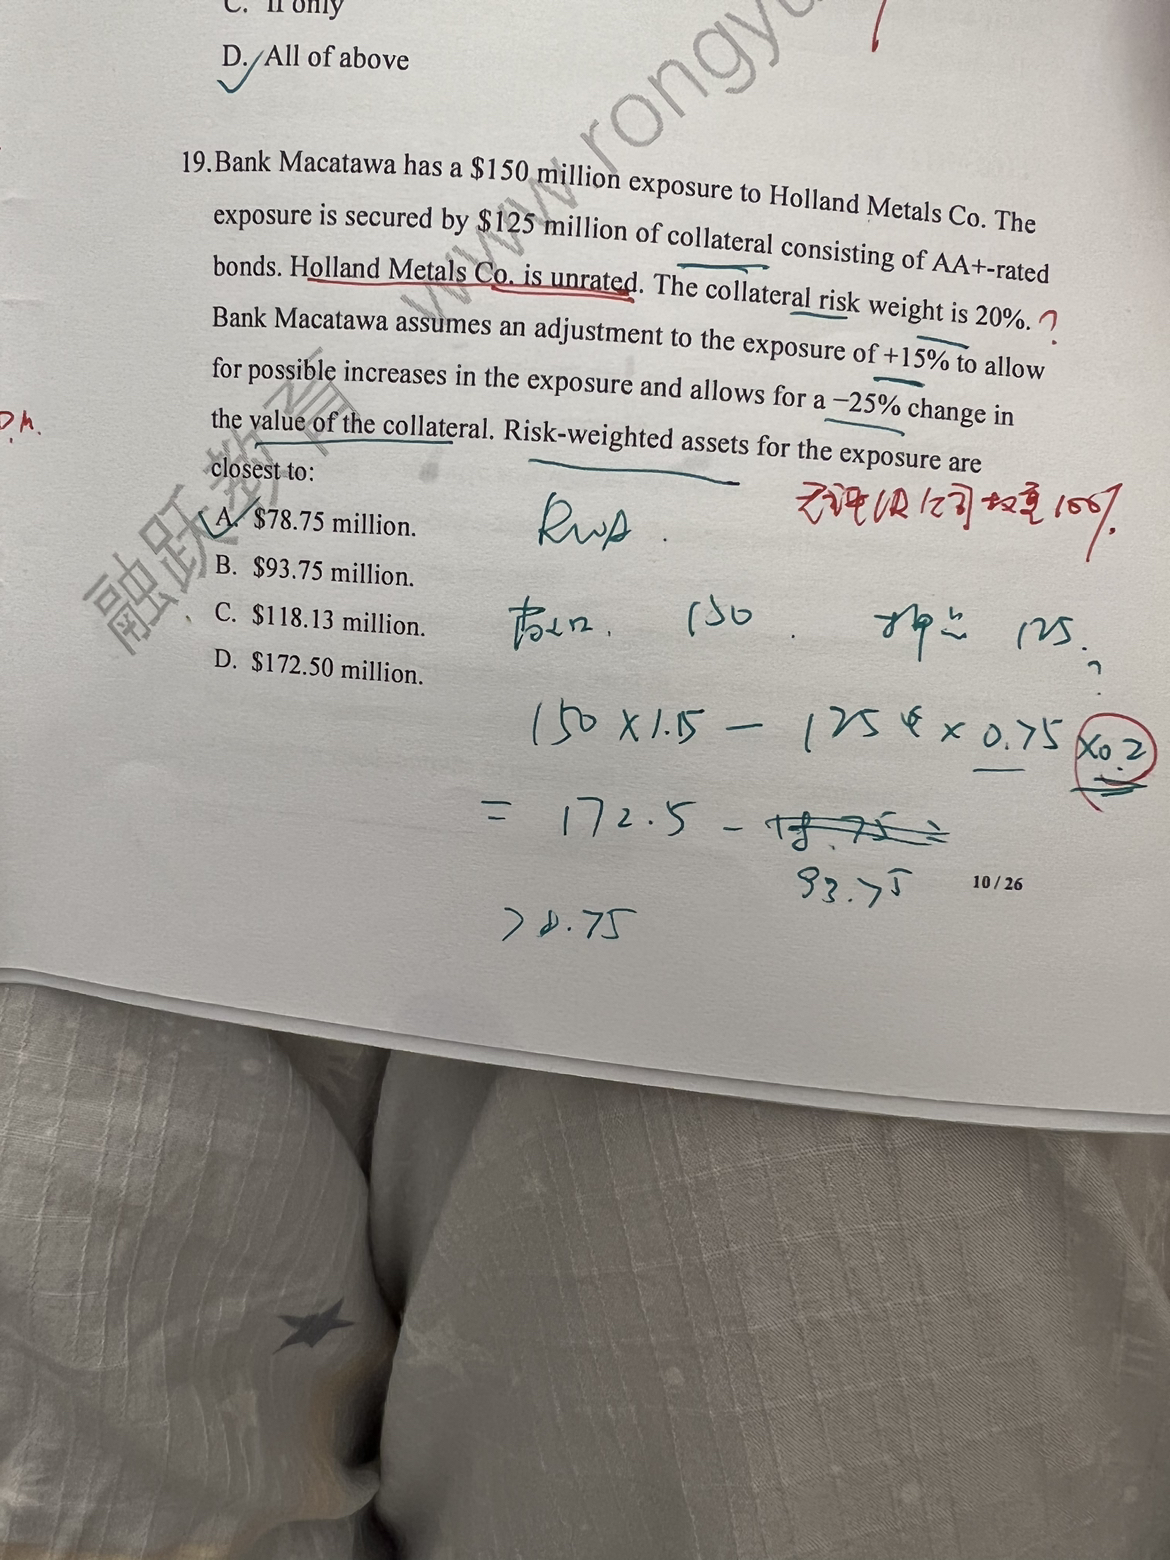 C. II only
D. All of above
19.Bank Macatawa has a $150 million exposure to Holland Metals Co. The
exposure is secured by $125 million of collateral consisting of AA+-rated
bonds. Holland Metals Co. is unrated. The collateral risk weight is 20%. ?
Bank Macatawa assumes an adjustment to the exposure of +15% to allow
for possible increases in the exposure and allows for a −25% change in
the value of the collateral. Risk-weighted assets for the exposure are
closest to:
A. $78.75 million.
B. $93.75 million.
C. $118.13 million.
D. $172.50 million.
RWA
公司权重100%.
敞口. 150. 125.
?
150 × 1.15 − 125 × 0.75 ×0.2
= 172.5 −
93.75
78.75
10 / 26
www.rongyu
融跃教育